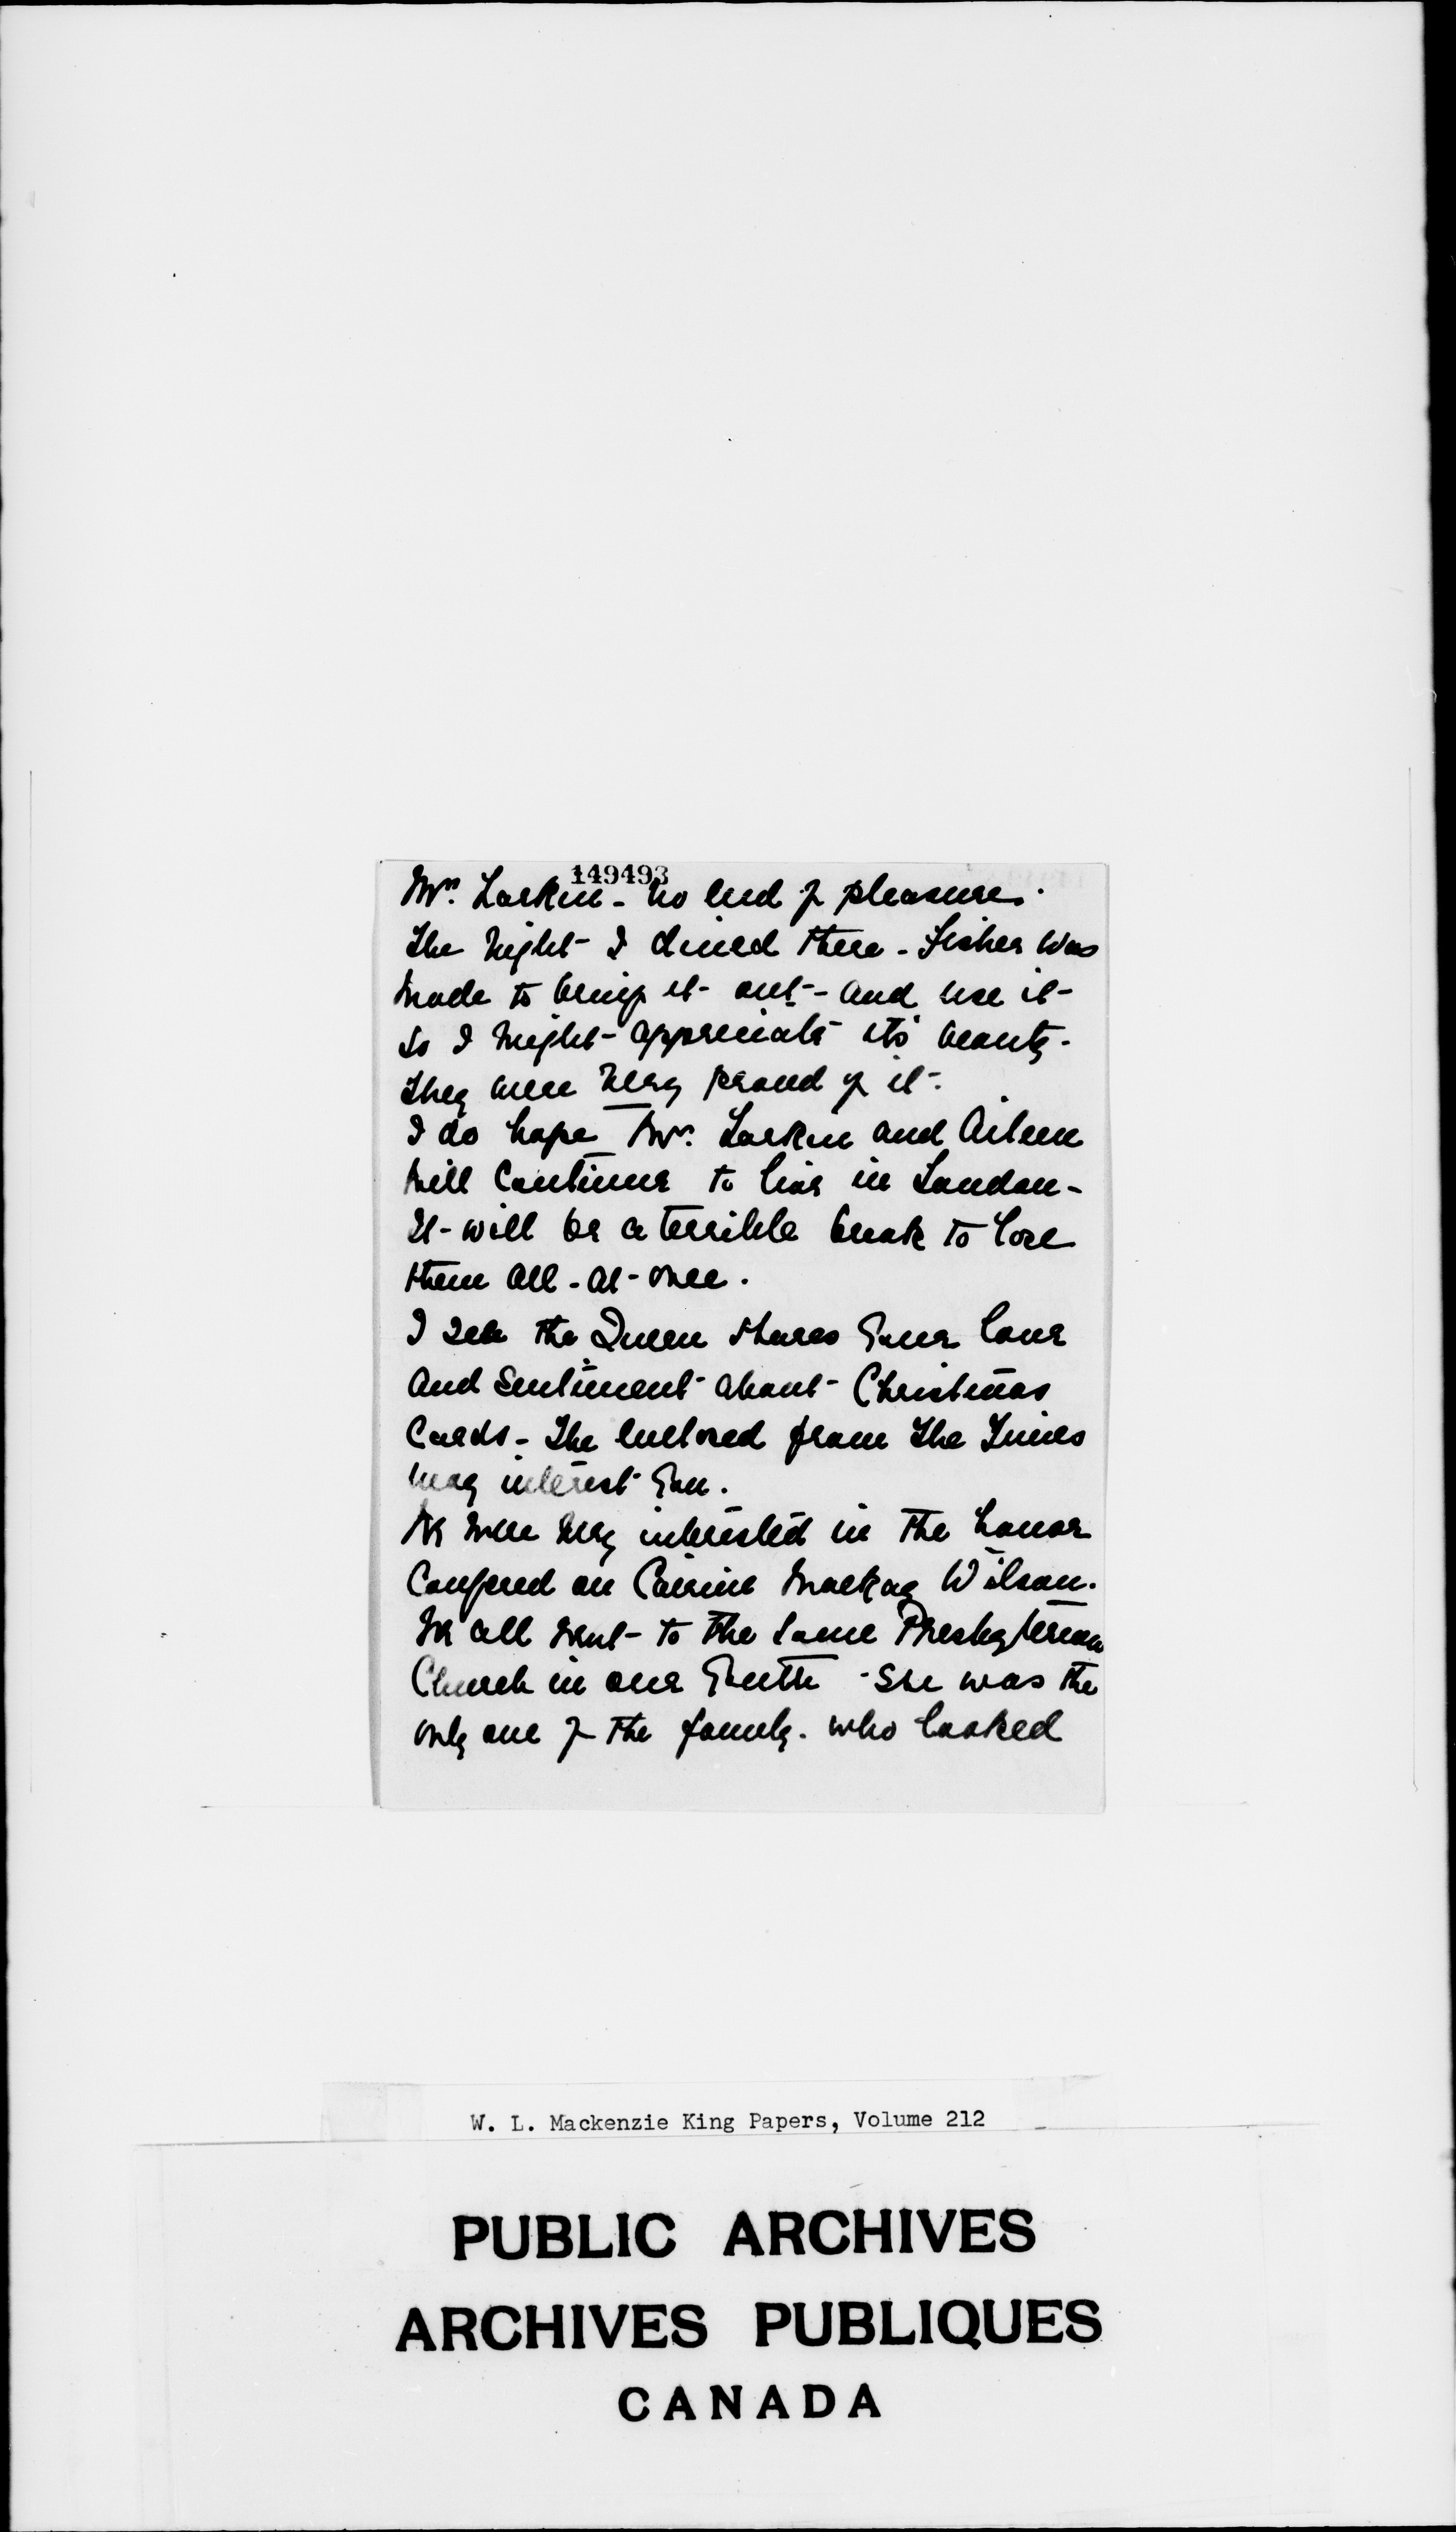 149493
Mrs. Larkin - no end of pleasure.
The night I dined there - Fisher was
made to bring it out - and use it -
so I might appreciate its beauty -
They were very proud of it -
I do hope Mrs. Larkin and Aileen
will continue to live in London -
It will be a terrible break to lose
them all - at - once.
I see the Queen shares your love
and sentiment about Christmas
Cards - The enclosed from The Times
may interest you.
We were very interested in the honor
Confered on Cairine Mackay Wilson.
We all went to the same Presbyterian
Church in our youth - She was the
only one of the family. who looked
W. L. Mackenzie King Papers, Volume 212
PUBLIC ARCHIVES
ARCHIVES PUBLIQUES
CANADA